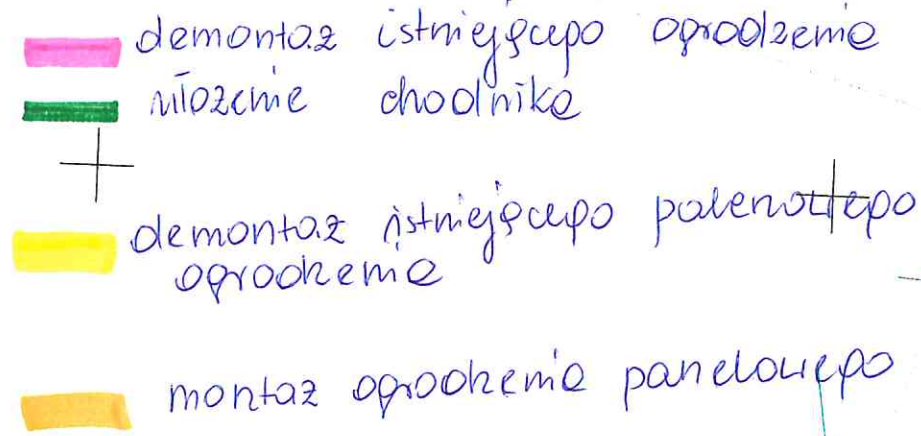 demontaż istniejącego ogrodzenia
ułożenie chodnika
demontaż istniejącego panelowego
ogrodzenia
montaż ogrodzenia panelowego